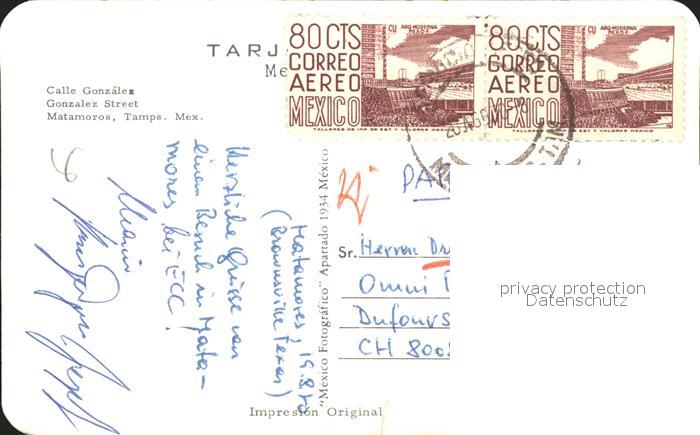 TARJ
Me
80 CTS
CORREO
AEREO
MEXICO
CU ARQ MODERNA
MEX D.F.
TALLERES DE IMP DE EST Y VALORES MEXICO
80 CTS
CORREO
AEREO
MEXICO
CU ARQ MODERNA
MEX D.F.
TALLERES DE IMP DE EST Y VALORES MEXICO
Calle González
Gonzalez Street
Matamoros, Tamps. Mex.
Matamoros, 19.8.
(Brownsville Texas)
Herzliche Grüsse von
einem Besuch in Mata-
moros bei ECC.
"Mexico Fotográfico" Apartado 1934 México
PA
Sr. Herren Dr
Omni
Dufours
CH 800
privacy protection
Datenschutz
Impresión Original